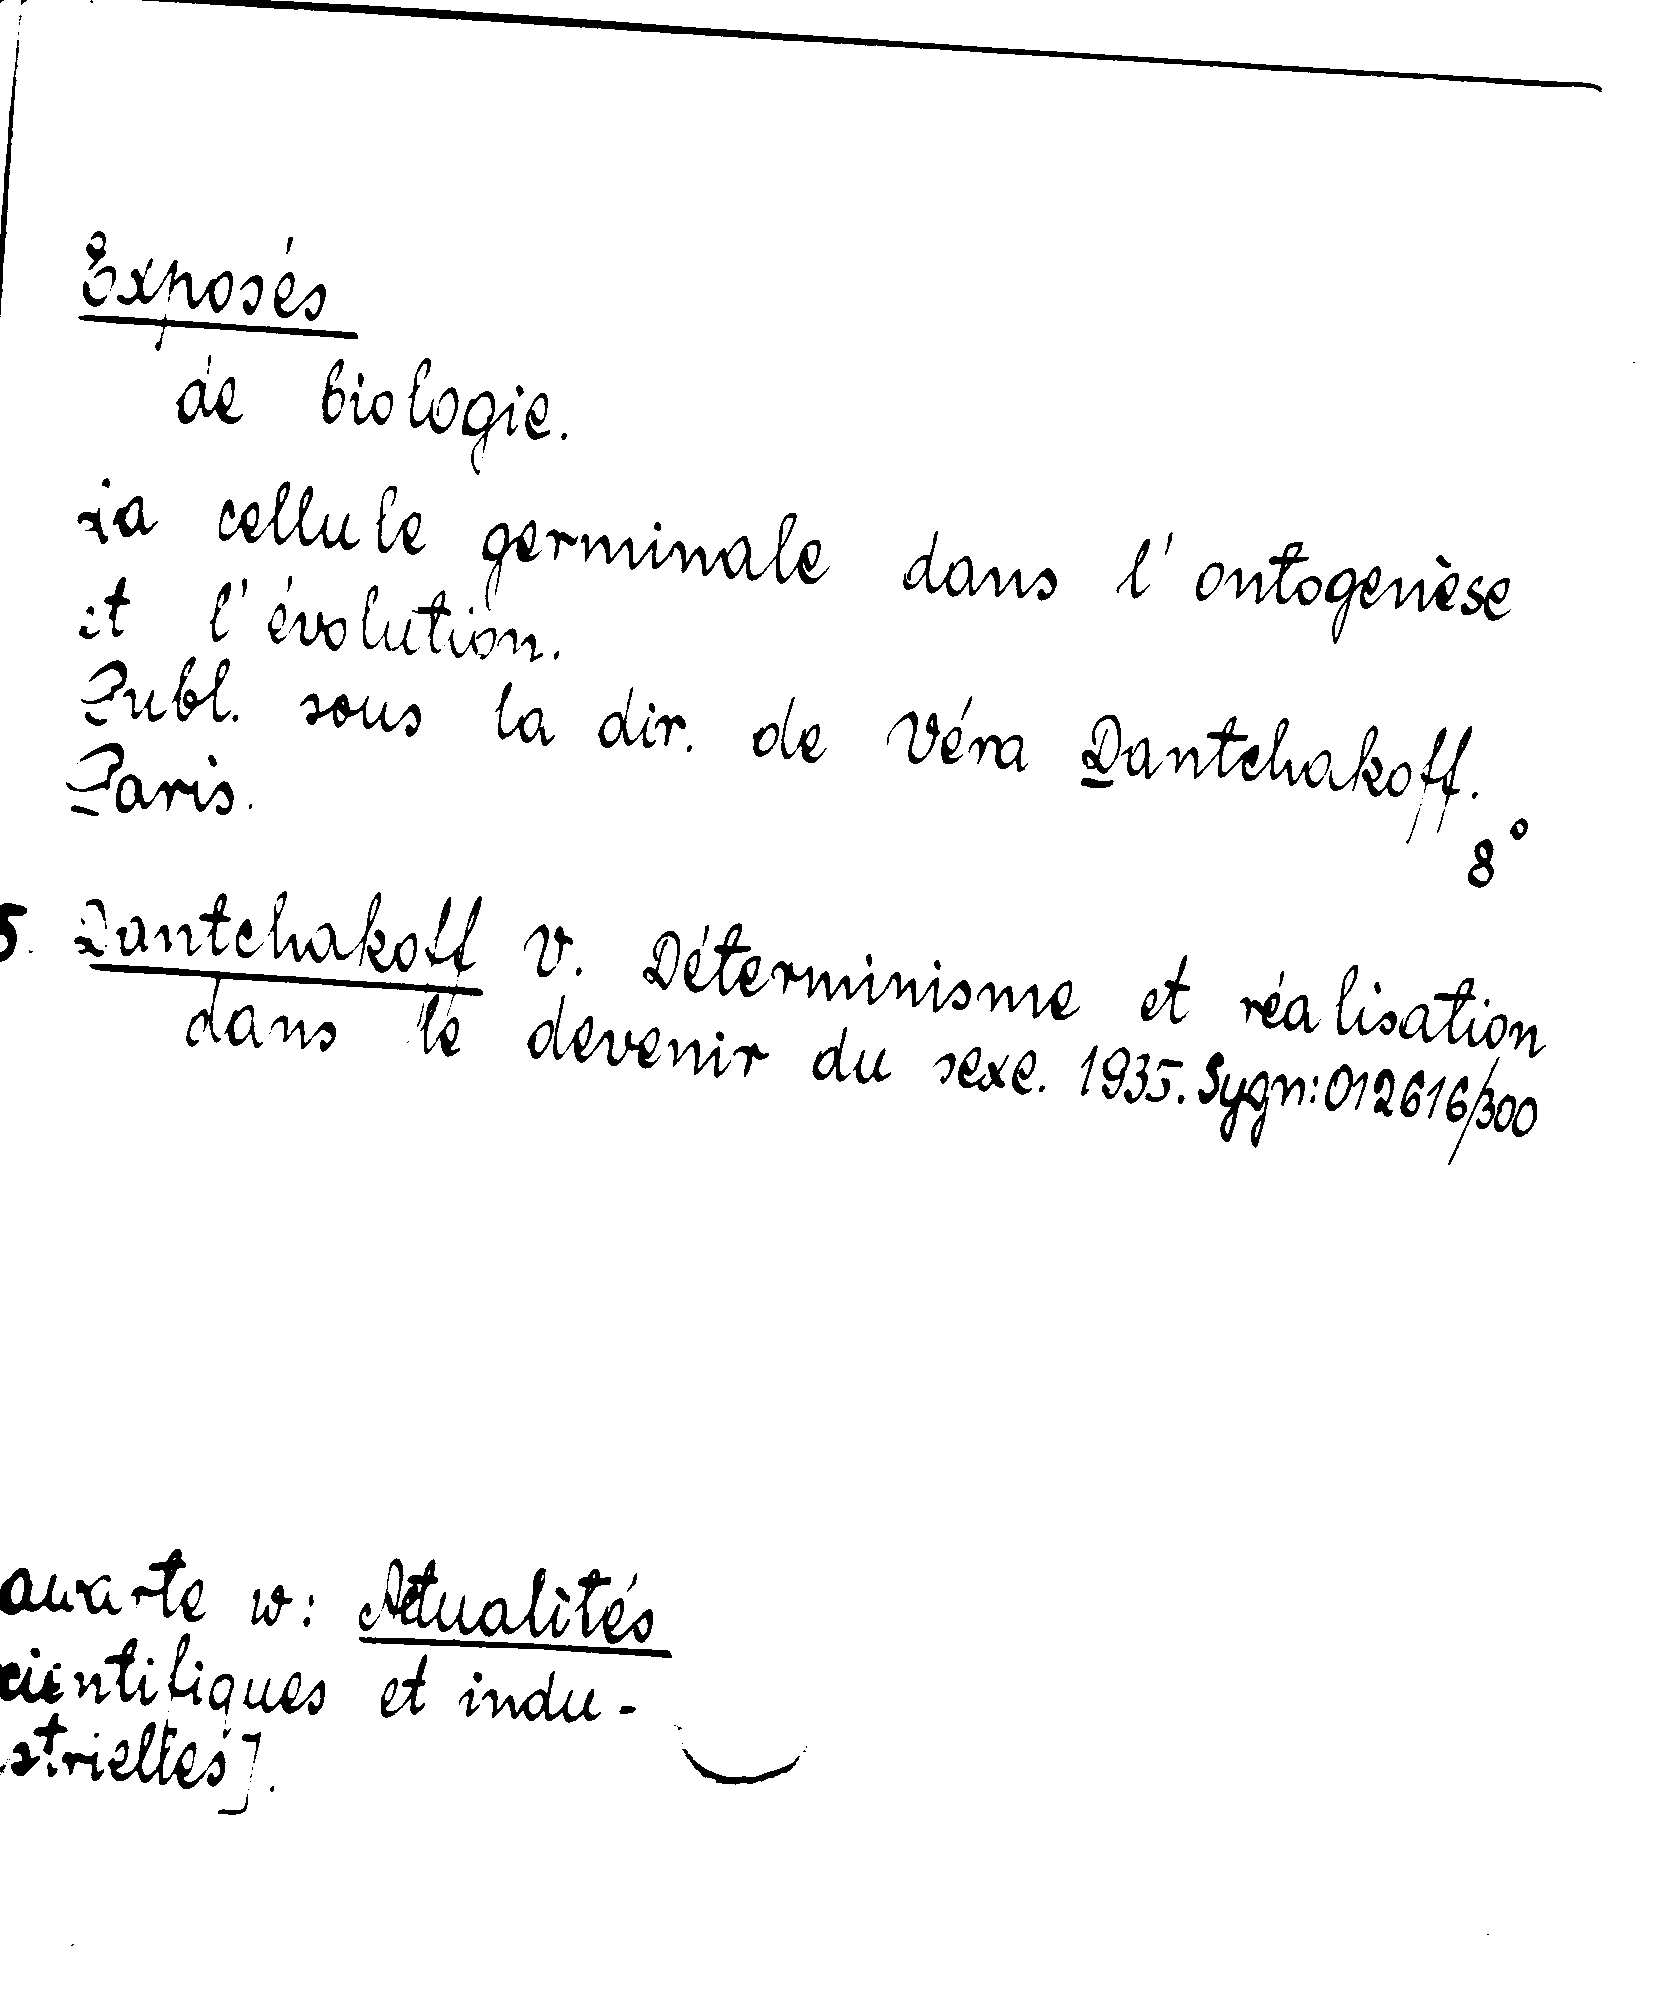 Exposés
de biologie.
La cellule germinale dans l'ontogenèse
et l'évolution.
Publ. sous la dir. de Véra Dantchakoff.
Paris.
8°
5. Dantchakoff V. Déterminisme et réalisation
dans le devenir du sexe. 1935. Sygn: 012616/300
awarte w: Actualités
cientifiques et indu-
strielles].